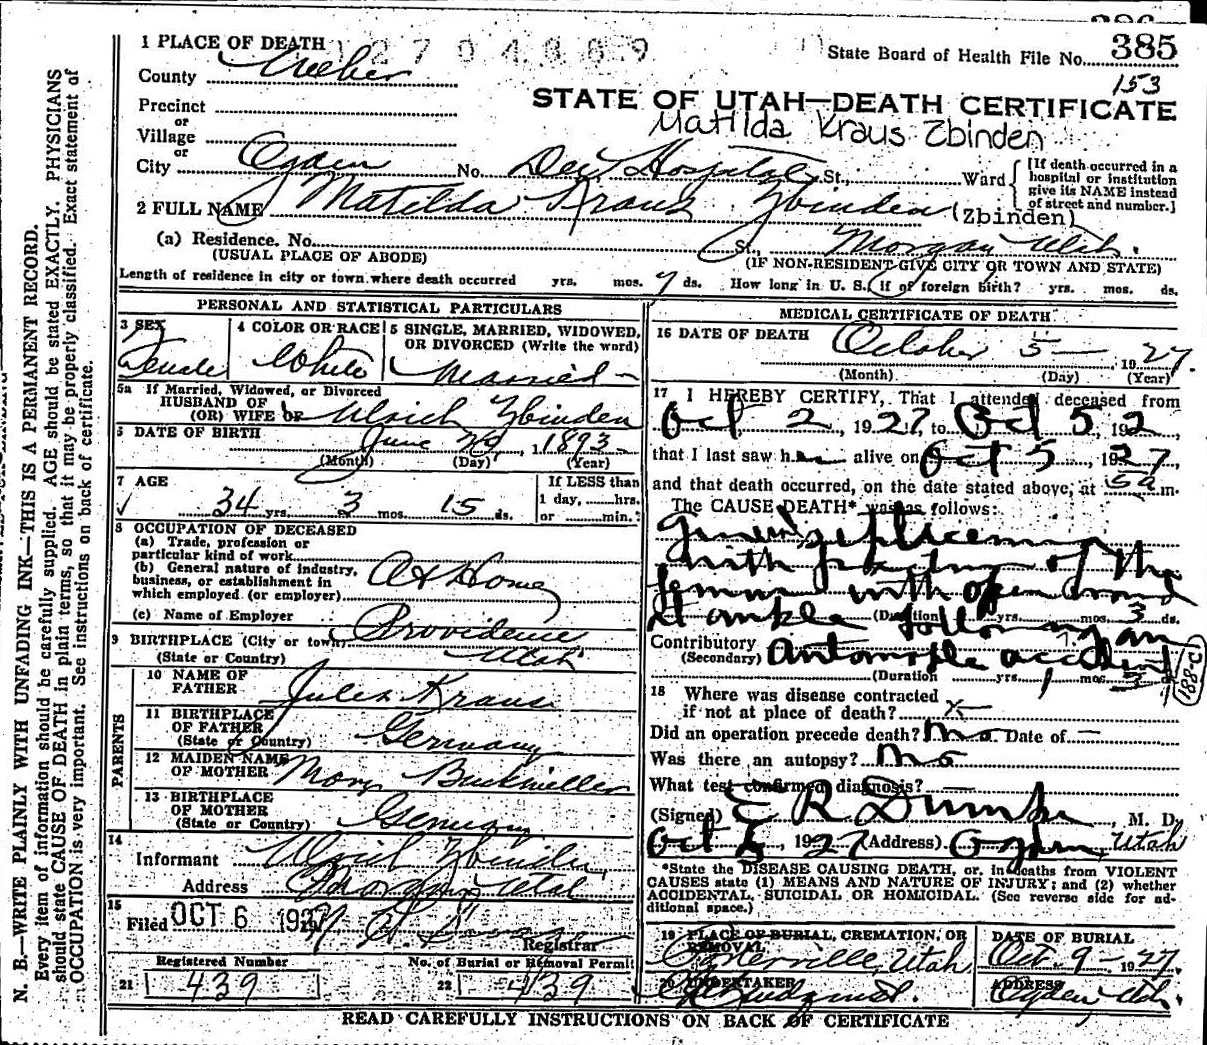 385
State Board of Health File No.
153
1 PLACE OF DEATH
County Weber
STATE OF UTAH—DEATH CERTIFICATE
Matilda Kraus Zbinden
Precinct
or
Village
or
City Ogden No. Dee Hospital St., Ward
[If death occurred in a hospital or institution give its NAME instead of street and number.]
2 FULL NAME Matilda Kraus Zbinden (Zbinden)
(a) Residence. No. St., Morgan Utah.
(USUAL PLACE OF ABODE) (IF NON-RESIDENT GIVE CITY OR TOWN AND STATE)
Length of residence in city or town where death occurred yrs. mos. 7 ds. How long in U. S. (if of foreign birth? yrs. mos. ds.
PERSONAL AND STATISTICAL PARTICULARS
3 SEX Female
4 COLOR OR RACE White
5 SINGLE, MARRIED, WIDOWED, OR DIVORCED (Write the word) Married
5a If Married, Widowed, or Divorced
HUSBAND OF
(OR) WIFE OF Ulrich Zbinden
6 DATE OF BIRTH June 20, 1893
(Month) (Day) (Year)
7 AGE 34 yrs. 3 mos. 15 ds.
If LESS than 1 day, hrs. or min.
8 OCCUPATION OF DECEASED
(a) Trade, profession or particular kind of work
(b) General nature of industry, business, or establishment in which employed (or employer) At Home
(c) Name of Employer
9 BIRTHPLACE (City or town) Providence
(State or Country) Utah
PARENTS
10 NAME OF FATHER Jules Kraus
11 BIRTHPLACE OF FATHER (State or Country) Germany
12 MAIDEN NAME OF MOTHER Mary
13 BIRTHPLACE OF MOTHER (State or Country) Germany
14 Informant Ulrich Zbinden
Address Morgan Utah
15 Filed OCT 6 1927
Registrar
Registered Number
21 439
No. of Burial or Removal Permit
22 439
MEDICAL CERTIFICATE OF DEATH
16 DATE OF DEATH October 5 1927
(Month) (Day) (Year)
17 I HEREBY CERTIFY, That I attended deceased from
Oct 2, 1927, to Oct 5, 192,
that I last saw her alive on Oct 5, 1927,
and that death occurred, on the date stated above, at 5a m.
The CAUSE DEATH* was as follows:
with fracture of the
femur with open wound
(Duration yrs. mos. 3 ds.
ankle following an
Contributory (Secondary) Automobile accident
(Duration yrs. mos. 3 ds.
188-C1
18 Where was disease contracted
if not at place of death? x
Did an operation precede death? No Date of —
Was there an autopsy? No
What test confirmed diagnosis? —
(Signed) E R Dumke, M. D.
Oct 1927 (Address) Ogden, Utah
*State the DISEASE CAUSING DEATH, or, in deaths from VIOLENT
CAUSES state (1) MEANS AND NATURE OF INJURY; and (2) whether
ACCIDENTAL, SUICIDAL OR HOMICIDAL. (See reverse side for additional space.)
19 PLACE OF BURIAL, CREMATION, OR REMOVAL Porterville, Utah
DATE OF BURIAL Oct. 9 - 1927
20 UNDERTAKER
ADDRESS Ogden, Utah.
READ CAREFULLY INSTRUCTIONS ON BACK OF CERTIFICATE
N. B.—WRITE PLAINLY WITH UNFADING INK—THIS IS A PERMANENT RECORD.
Every item of information should be carefully supplied. AGE should be stated EXACTLY. PHYSICIANS
should state CAUSE OF DEATH in plain terms, so that it may be properly classified. Exact statement of
OCCUPATION is very important. See instructions on back of certificate.